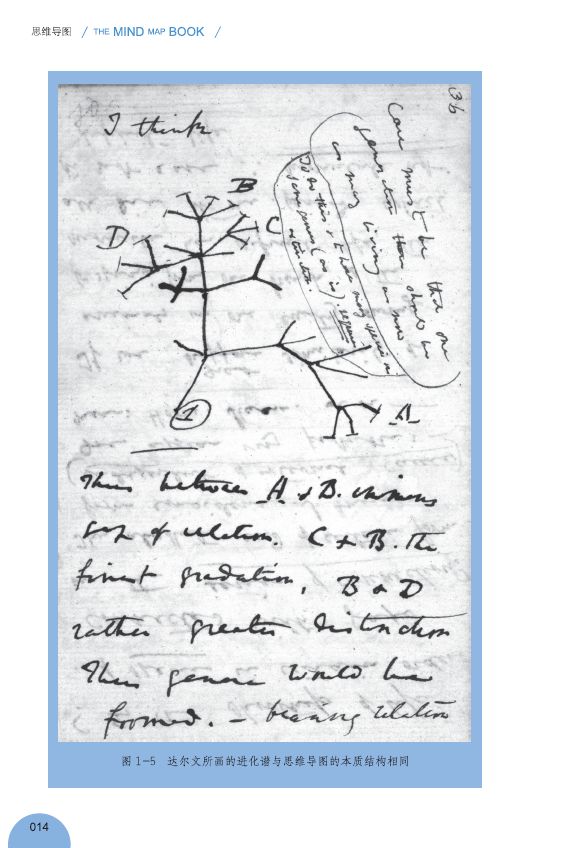 思维导图 / THE MIND MAP BOOK /
36
I think
Case must be that one
generation then should be
as many living as now
To do this & to have many species in
same genus (as is). requires
extinction.
B
C
D
A
1
Thus between A & B. immense
gap of relation. C & B. the
finest gradation, B & D
rather greater distinction
Thus genera would be
formed. — bearing relation
图1-5 达尔文所画的进化谱与思维导图的本质结构相同
014